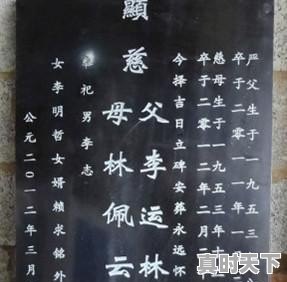 严父生于一九五三
卒于二〇一一年一
慈母生于一九五三年十
卒于二零一二年二月二
今择吉日立碑安葬永远怀
父李运林
顯慈
母林佩云
祀男李志
女李明哲女婿賴求銘外
公元二〇一二年三月
真时天下